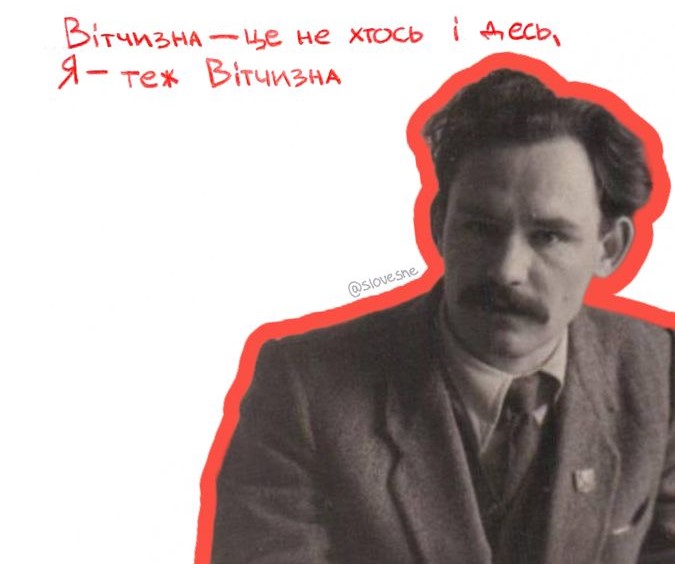 Вітчизна — це не хтось і десь,
Я — теж Вітчизна
@slovesne